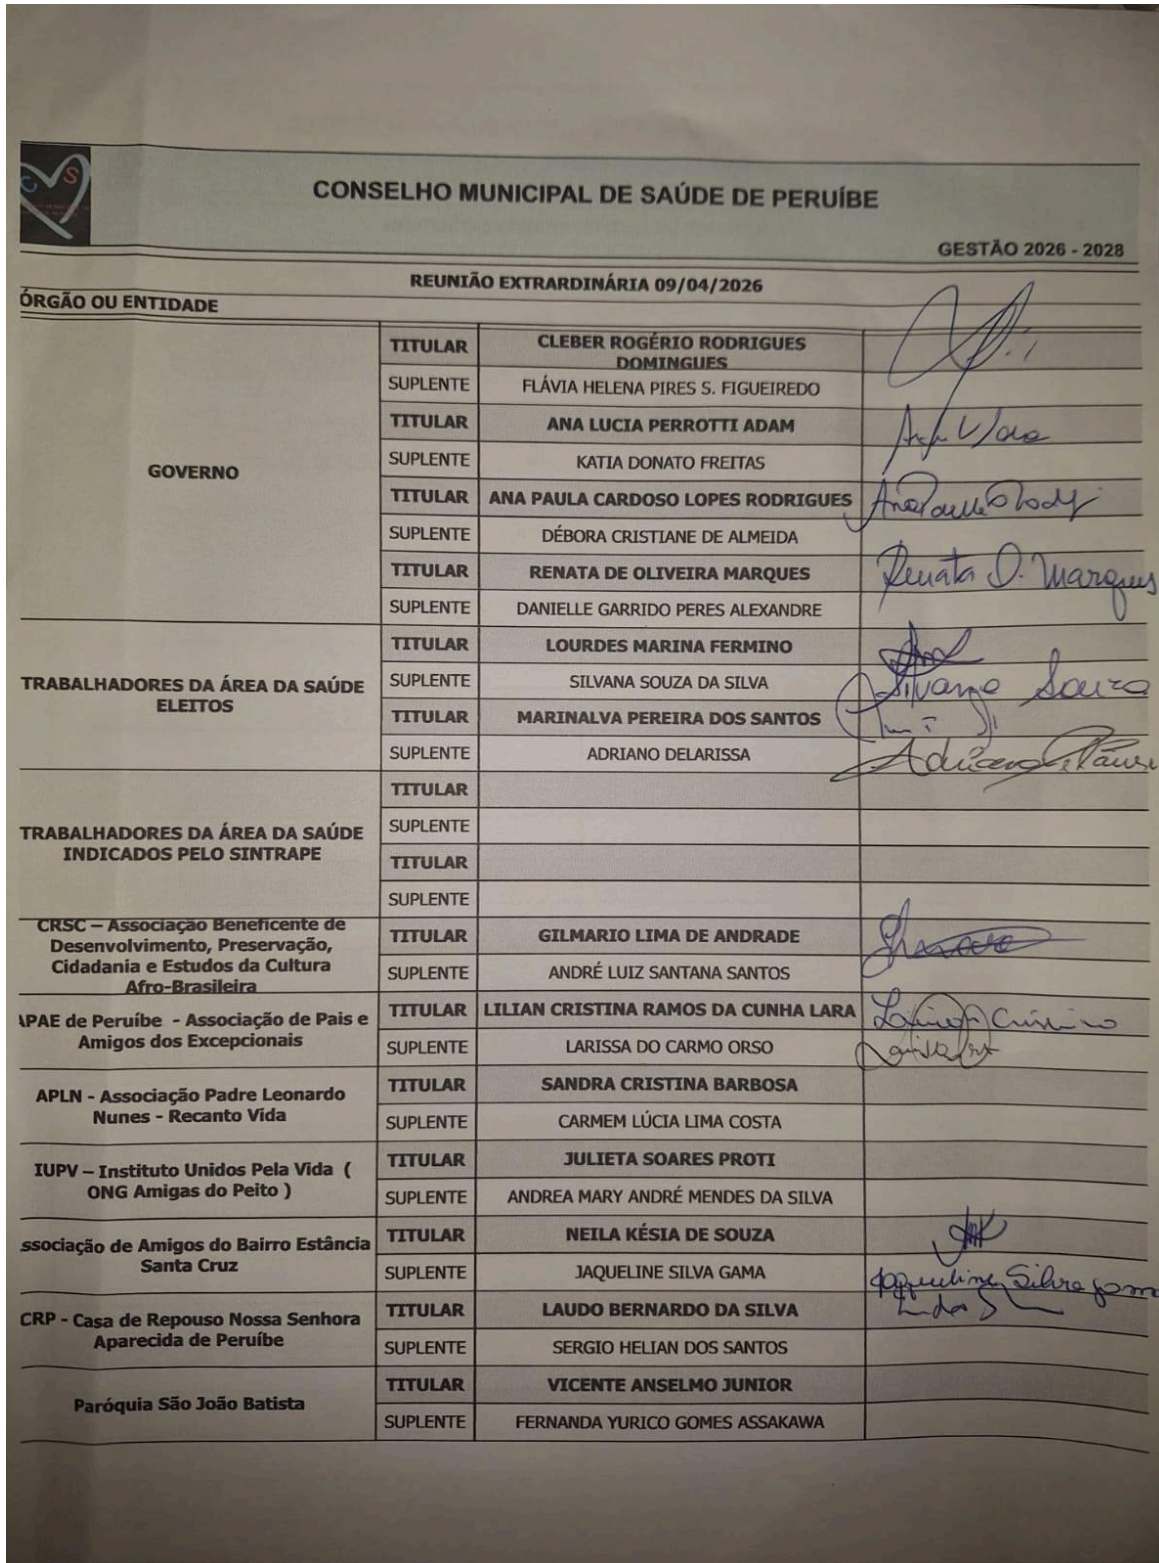 CVS
CONSELHO MUNICIPAL DE SAÚDE DE PERUÍBE
GESTÃO 2026 - 2028
REUNIÃO EXTRARDINÁRIA 09/04/2026
ÓRGÃO OU ENTIDADE
GOVERNO
TITULAR CLEBER ROGÉRIO RODRIGUES
DOMINGUES
SUPLENTE FLÁVIA HELENA PIRES S. FIGUEIREDO
TITULAR ANA LUCIA PERROTTI ADAM
SUPLENTE KATIA DONATO FREITAS
TITULAR ANA PAULA CARDOSO LOPES RODRIGUES
SUPLENTE DÉBORA CRISTIANE DE ALMEIDA
TITULAR RENATA DE OLIVEIRA MARQUES Renata O. Marques
SUPLENTE DANIELLE GARRIDO PERES ALEXANDRE
TRABALHADORES DA ÁREA DA SAÚDE
ELEITOS
TITULAR LOURDES MARINA FERMINO
SUPLENTE SILVANA SOUZA DA SILVA Silvana Souza
TITULAR MARINALVA PEREIRA DOS SANTOS
SUPLENTE ADRIANO DELARISSA
TRABALHADORES DA ÁREA DA SAÚDE
INDICADOS PELO SINTRAPE
TITULAR
SUPLENTE
TITULAR
SUPLENTE
CRSC – Associação Beneficente de
Desenvolvimento, Preservação,
Cidadania e Estudos da Cultura
Afro-Brasileira
TITULAR GILMARIO LIMA DE ANDRADE
SUPLENTE ANDRÉ LUIZ SANTANA SANTOS
APAE de Peruíbe - Associação de Pais e
Amigos dos Excepcionais
TITULAR LILIAN CRISTINA RAMOS DA CUNHA LARA
SUPLENTE LARISSA DO CARMO ORSO
APLN - Associação Padre Leonardo
Nunes - Recanto Vida
TITULAR SANDRA CRISTINA BARBOSA
SUPLENTE CARMEM LÚCIA LIMA COSTA
IUPV – Instituto Unidos Pela Vida (
ONG Amigas do Peito )
TITULAR JULIETA SOARES PROTI
SUPLENTE ANDREA MARY ANDRÉ MENDES DA SILVA
ssociação de Amigos do Bairro Estância
Santa Cruz
TITULAR NEILA KÉSIA DE SOUZA
SUPLENTE JAQUELINE SILVA GAMA Jaqueline Silva Gama
CRP - Casa de Repouso Nossa Senhora
Aparecida de Peruíbe
TITULAR LAUDO BERNARDO DA SILVA
SUPLENTE SERGIO HELIAN DOS SANTOS
Paróquia São João Batista
TITULAR VICENTE ANSELMO JUNIOR
SUPLENTE FERNANDA YURICO GOMES ASSAKAWA